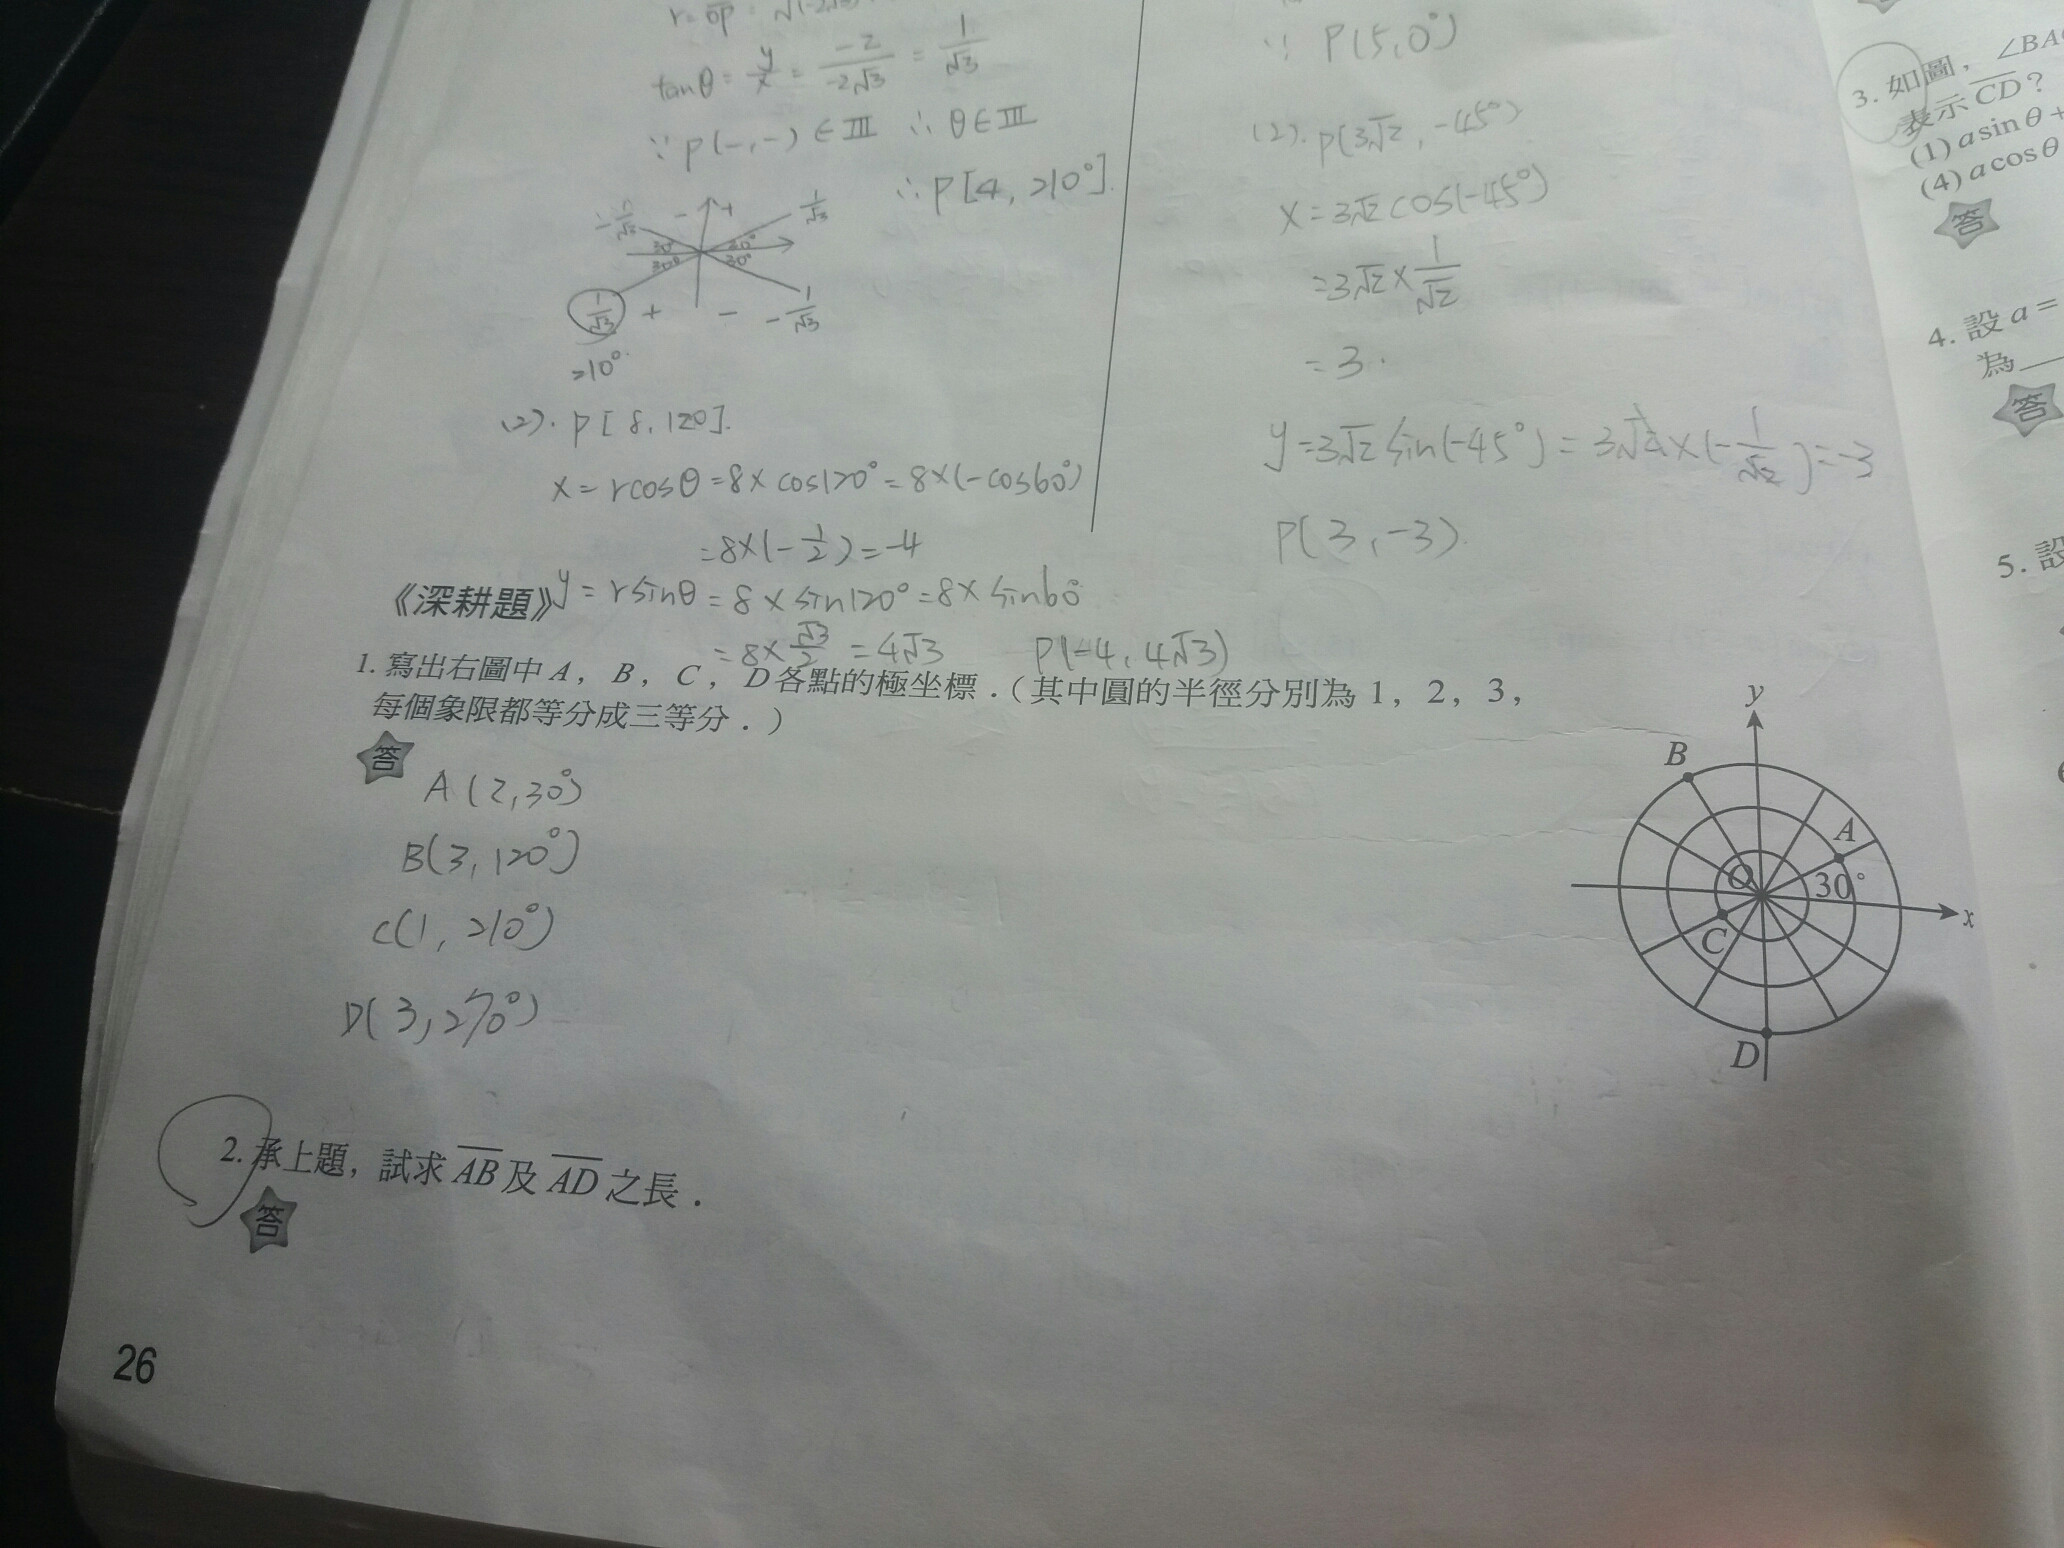 r = OP = √(-2√3)
tanθ = y/x = -2/-2√3 = 1/√3
∵ P(-,-) ∈ III ∴ θ ∈ III
∴ P[4, 210°]
-1/√3 - + 1/√3
30° 30°
30° 30°
1/√3 + - -1/√3
210°
(2). P[8, 120].
x = rcosθ = 8×cos120° = 8×(-cos60°)
= 8×(-1/2) = -4
y = rsinθ = 8×sin120° = 8×sin60°
= 8×√3/2 = 4√3 P(-4, 4√3)
∵ P(5, 0°)
(2). P(3√2, -45°)
x = 3√2 cos(-45°)
= 3√2 × 1/√2
= 3.
y = 3√2 sin(-45°) = 3√2 × (-1/√2) = -3
P(3, -3).
《深耕題》
1. 寫出右圖中 A，B，C，D 各點的極坐標．（其中圓的半徑分別為 1，2，3，
每個象限都等分成三等分．）
答
A(2, 30°)
B(3, 120°)
C(1, 210°)
D(3, 270°)
y
B
A
O
30°
x
C
D
2. 承上題，試求 AB 及 AD 之長．
答
26
3. 如圖，∠BA
表示 CD？
(1) a sinθ +
(4) a cosθ
答
4. 設 a =
為
答
5. 設